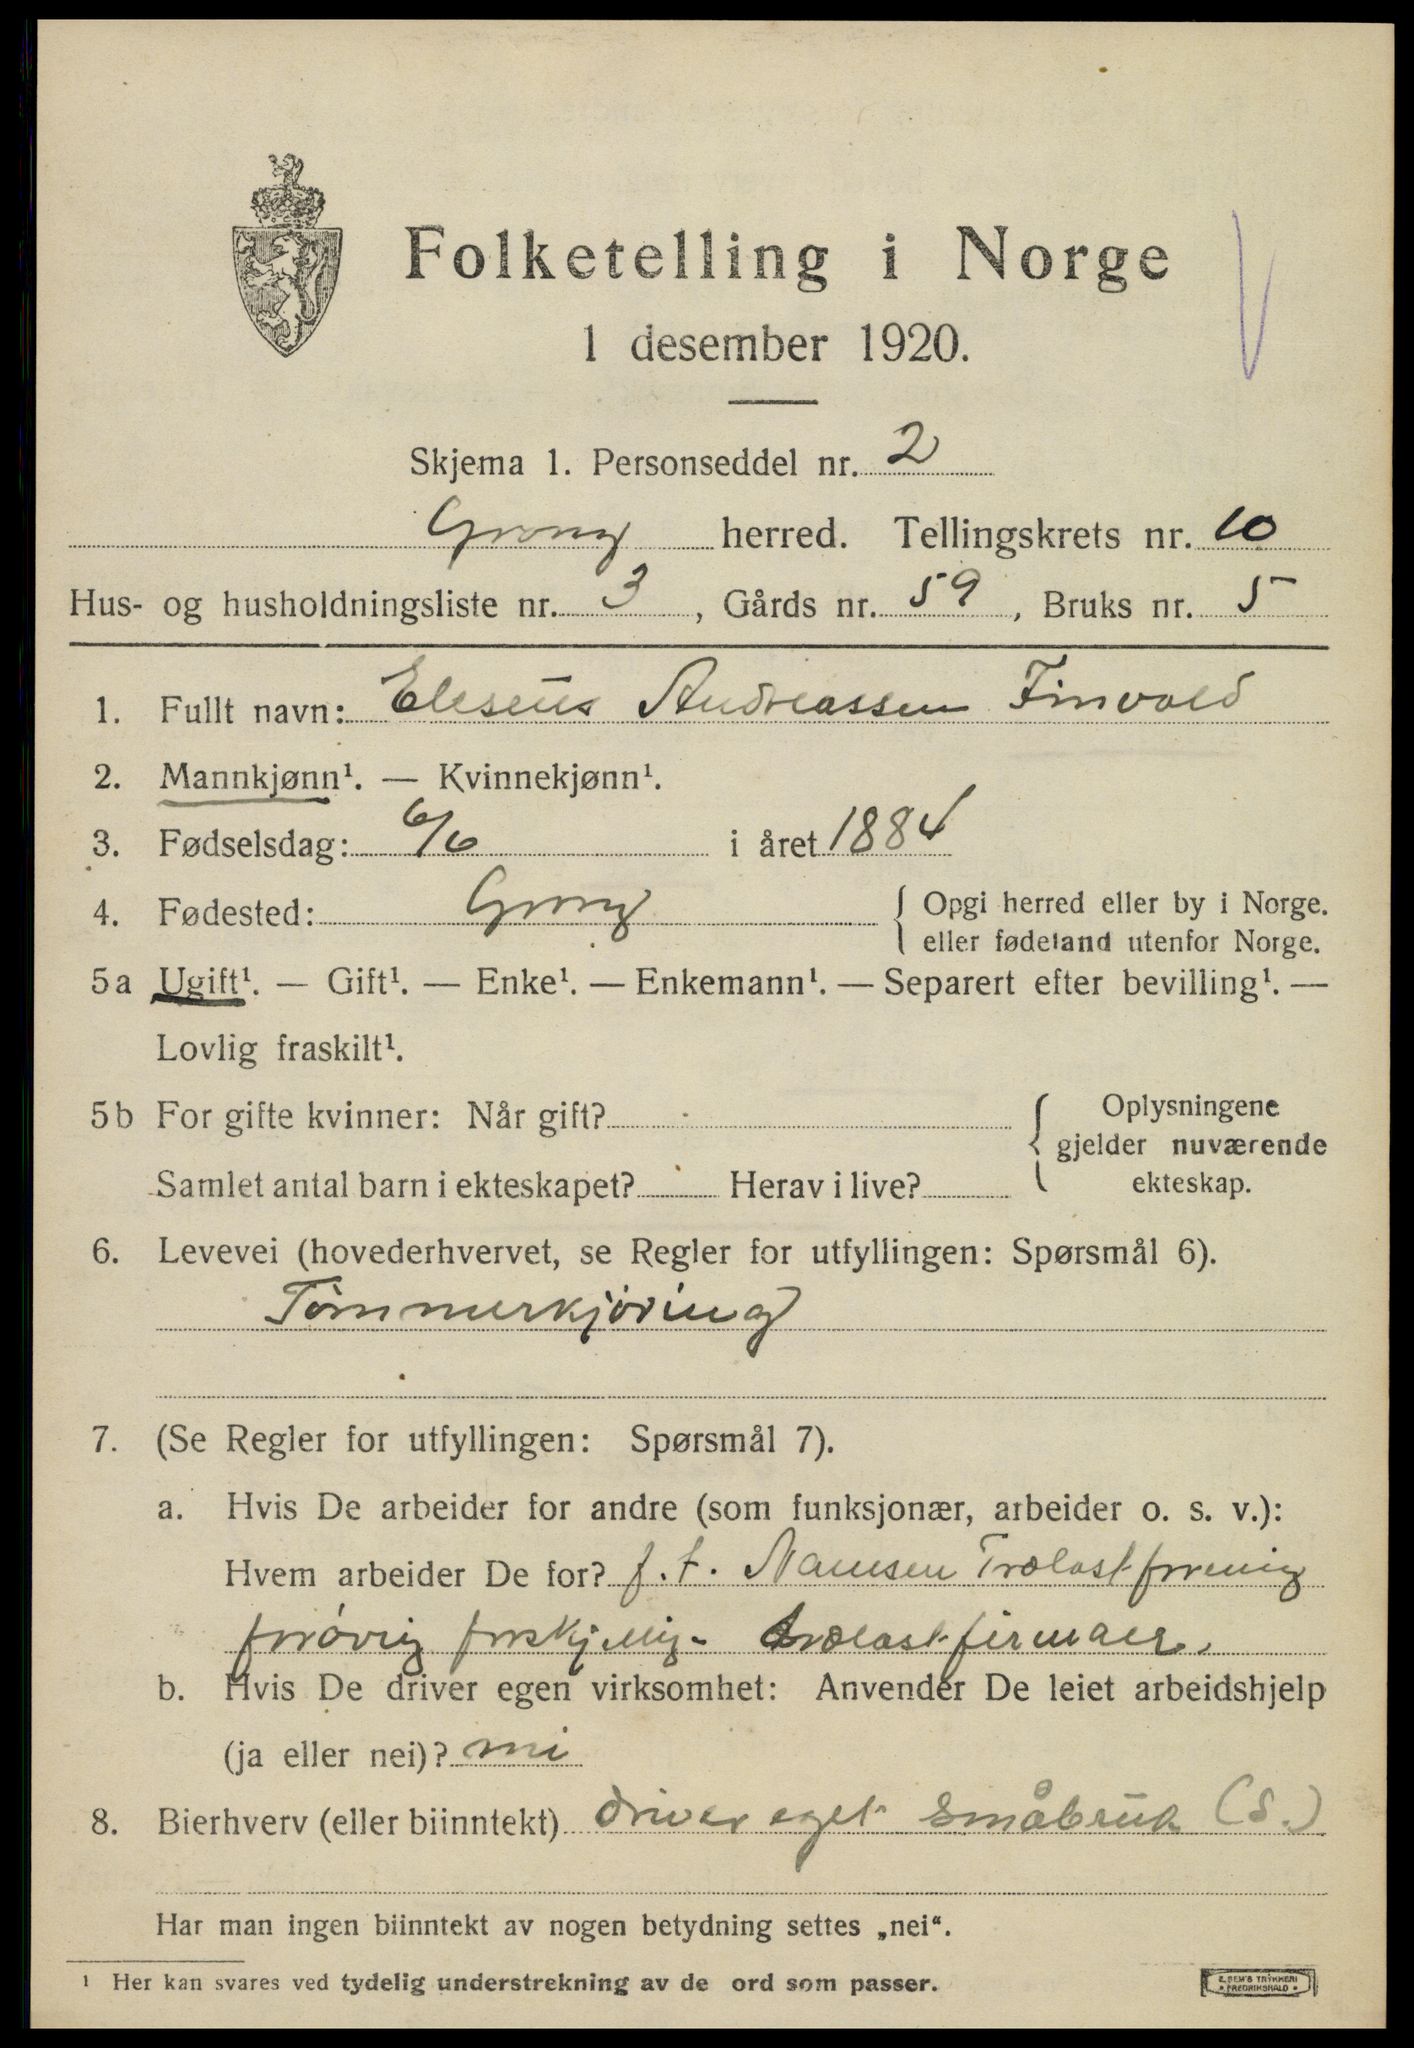 Folketelling i Norge
1 desember 1920.
Skjema 1. Personseddel nr. 2
Grong herred. Tellingskrets nr. 10
Hus- og husholdningsliste nr. 3, Gårds nr. 59, Bruks nr. 5
1. Fullt navn: Eleseus Andreassen Finvold
2. Mannkjønn¹. — Kvinnekjønn¹.
3. Fødselsdag: 6/6 i året 1884
4. Fødested: Grong { Opgi herred eller by i Norge.
eller fødeland utenfor Norge.
5a Ugift¹. — Gift¹. — Enke¹. — Enkemann¹. — Separert efter bevilling¹. —
Lovlig fraskilt¹.
5b For gifte kvinner: Når gift? { Oplysningene
gjelder nuværende
Samlet antal barn i ekteskapet? Herav i live? ekteskap.
6. Levevei (hovederhvervet, se Regler for utfyllingen: Spørsmål 6).
Tømmerkjøring
7. (Se Regler for utfyllingen: Spørsmål 7).
a. Hvis De arbeider for andre (som funksjonær, arbeider o. s. v.):
Hvem arbeider De for? f. t. Namsen Trælastforening
forøvrig forskjellig. trælastfirmaer.
b. Hvis De driver egen virksomhet: Anvender De leiet arbeidshjelp
(ja eller nei)? nei
8. Bierhverv (eller biinntekt) driver eget småbruk (S.)
Har man ingen biinntekt av nogen betydning settes „nei“.
¹ Her kan svares ved tydelig understrekning av de ord som passer.
E. SEM'S TRYKKERI
• FREDRIKSHALD •